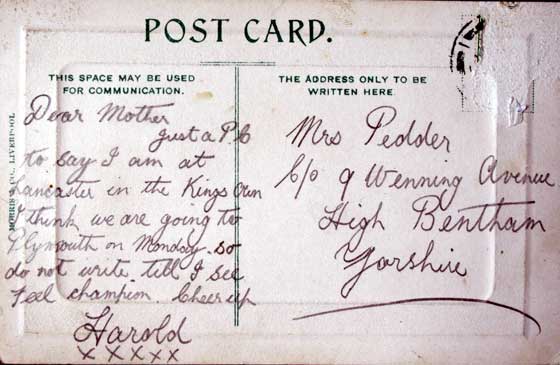 POST CARD.
THIS SPACE MAY BE USED
FOR COMMUNICATION.
THE ADDRESS ONLY TO BE
WRITTEN HERE.
MORRIS & CO., LIVERPOOL
Dear Mother
Just a P.C
to say I am at
Lancaster in the Kings Own
I think we are going to
Plymouth on Monday. so
do not write till I see
Feel champion. Cheer up
Harold
x x x x x
Mrs Pedder
C/o 9 Wenning Avenue
High Bentham
Yorshire